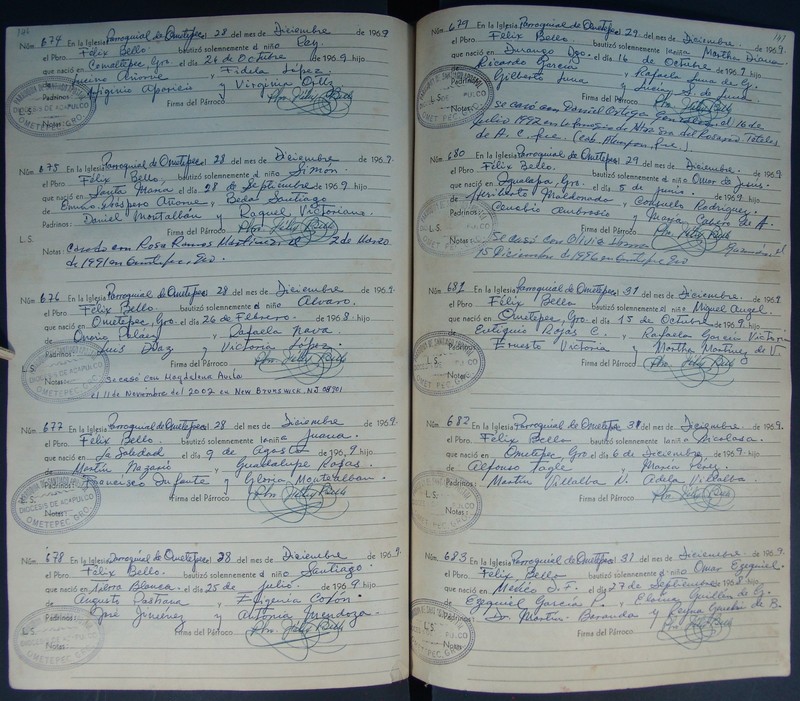 Núm. 674 En la Iglesia Parroquial de Ometepec el 28 del mes de Diciembre de 1969
el Pbro. Félix Bello bautizó solemnemente al niño Rey.
que nació en Cometepec, Gro. el día 26 de Octubre de 1969. hijo
de y Fidela López.
Padrinos: Higinio Aparicio y Virginia
L. S. Firma del Párroco Pbro. Félix Bello
Notas:
Núm. 675 En la Iglesia Parroquial de Ometepec el 28 del mes de Diciembre de 1969.
el Pbro. Félix Bello, bautizó solemnemente al niño Simón.
que nació en Santa María el día 28 de Septiembre de 1969 hijo
de Próspero Añorve y Beda Santiago
Padrinos: Daniel Montalbán y Raquel Victoriano
L. S. Firma del Párroco Pbro. Félix Bello
Notas: Casado con Rosa Ramos Martínez el 2 de Marzo
de 1991 en Ometepec, Gro.
Núm. 676 En la Iglesia Parroquial de Ometepec el 28 del mes de Diciembre de 1969.
el Pbro. Félix Bello. bautizó solemnemente al niño Alvaro.
que nació en Ometepec, Gro. el día 26 de Febrero. de 1968. hijo
de Onorio Peláez y Rafaela Nava
Padrinos: Luis Díaz y Victoria López.
L. S. Firma del Párroco Pbro. Félix Bello
Notas: Se casó con Magdalena Avila
el 11 de Noviembre del 2002 en New Brunswick, NJ 08901
Núm. 677 En la Iglesia Parroquial de Ometepec el 28 del mes de Diciembre de 1969.
el Pbro. Félix Bello. bautizó solemnemente la niña Juana.
que nació en La Soledad el día 9 de Agosto de 1969 hijo
de Martín Nazario y Guadalupe Rojas.
Padrinos: Francisco Infante y Gloria Montealbán.
L. S. Firma del Párroco Pbro. Félix Bello
Notas:
Núm. 678 En la Iglesia Parroquial de Ometepec el 28 del mes de Diciembre de 1969.
el Pbro. Félix Bello. bautizó solemnemente al niño Santiago
que nació en Piedra Blanca. el día 25 de Julio. de 1969. hijo
de Augusto Pastrana y Eugenia Colón
Padrinos: José Jiménez y Antonia Mendoza.
Firma del Párroco Pbro. Félix Bello
Notas:
Núm. 679 En la Iglesia Parroquial de Ometepec el 29 del mes de Diciembre. de 1969.
el Pbro. Félix Bello. bautizó solemnemente la niña Martha Diana
que nació en Durango Dgo. el día 16 de Octubre de 1969. hijo
de Ricardo García y Rafaela Luna de G.
Padrinos: Gilberto Luna y Lucina S. de Luna
L. S. Firma del Párroco Pbro. Félix Bello
Notas: se casó con Daniel Ortega González el 16 de
Julio 1992 en la Parroquia de Ntra. Sra. del Rosario
680
Núm. En la Iglesia Parroquial de Ometepec el 29 del mes de Diciembre. de 1969.
el Pbro. Félix Bello. bautizó solemnemente al niño Omar de Jesús.
que nació en Igualapa, Gro. el día 5 de junio. de 1969 hijo
de Heriberto Maldonado y Consuelo Rodríguez.
Padrinos: Cenobio Ambrosio y Maya de A.
L. S. Firma del Párroco Pbro. Félix Bello
Notas: Se casó con Olivia Guzmán, el
15 Diciembre de 1996 en Ometepec Gro
Núm. 681 En la Iglesia Parroquial de Ometepec el 31 del mes de Diciembre. de 1969
el Pbro. Félix Bello bautizó solemnemente al niño Miguel Angel.
que nació en Ometepec, Gro. el día 15 de Octubre de 1969. hijo
de Eutiquio Rojas C. y Rafaela García Victoria
Padrinos: Ernesto Victoria y Martha Martínez de V.
L. S. Firma del Párroco Pbro. Félix Bello
Notas:
Núm. 682 En la Iglesia Parroquial de Ometepec el 31 del mes de Diciembre. de 1969.
el Pbro. Félix Bello bautizó solemnemente la niña Nicolasa.
que nació en Ometepec, Gro. el día 6 de Diciembre. de 1969. hijo
de Alfonso Tagle y María Pérez.
Padrinos: Martín Villalba V. Adela Villalba.
L. S. Firma del Párroco Pbro. Félix Bello
Notas:
Núm. 683 En la Iglesia Parroquial de Ometepec el 31 del mes de Diciembre. de 1969.
el Pbro. Félix Bello bautizó solemnemente al niño Omar Ezequiel
que nació en México D.F. el día 27 de Septiembre de 1968. hijo
de Ezequiel García P. y Eloína Guillén de G.
Padrinos: Dr. Martín Baranda y Reyna de B.
L. S. Firma del Párroco Pbro. Félix Bello
Notas: